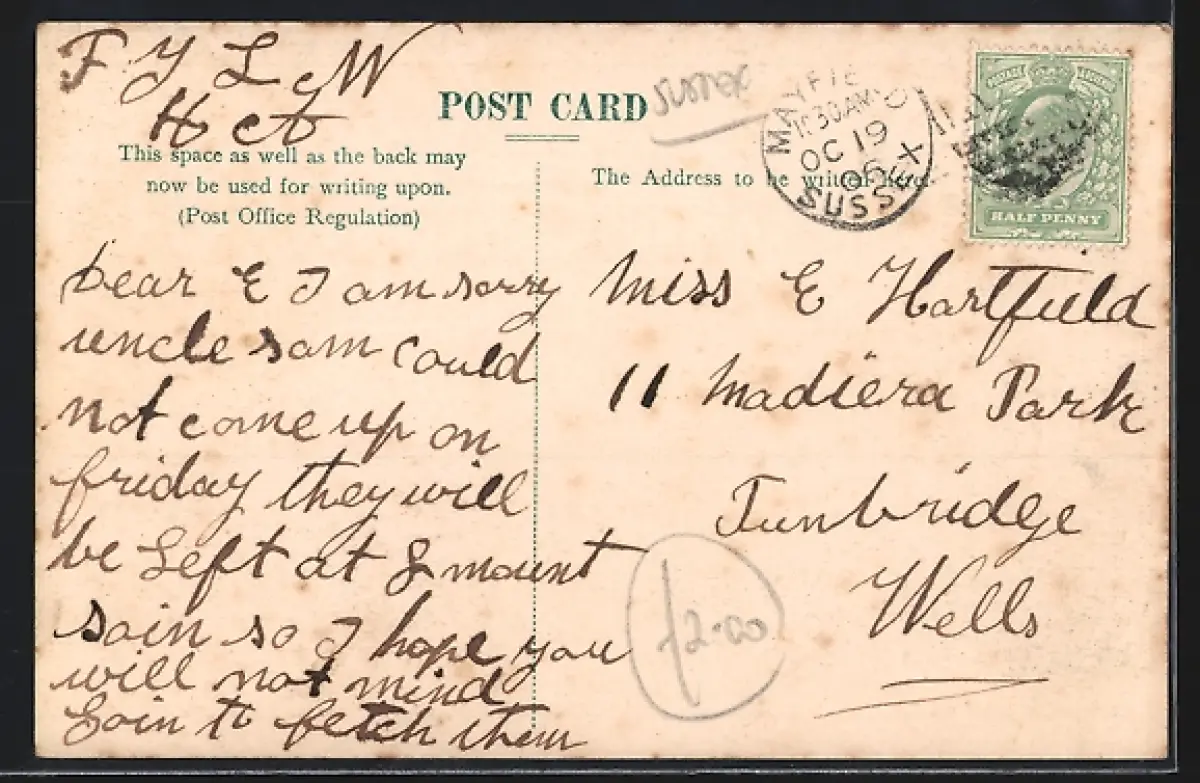 F Y L & W
H et A
POST CARD
SUSSEX
This space as well as the back may
now be used for writing upon.
(Post Office Regulation)
The Address to be written here.
MAYFIELD
10.30AM
OC 19
06
SUSSEX
HALF PENNY
Dear E I am sorry
uncle sam could
not come up on
friday they will
be left at & mount
soin so I hope you
will not mind
Goin to fetch them
Miss E Hartfield
11 Madiera Park
Tunbridge
Wells
£2.00